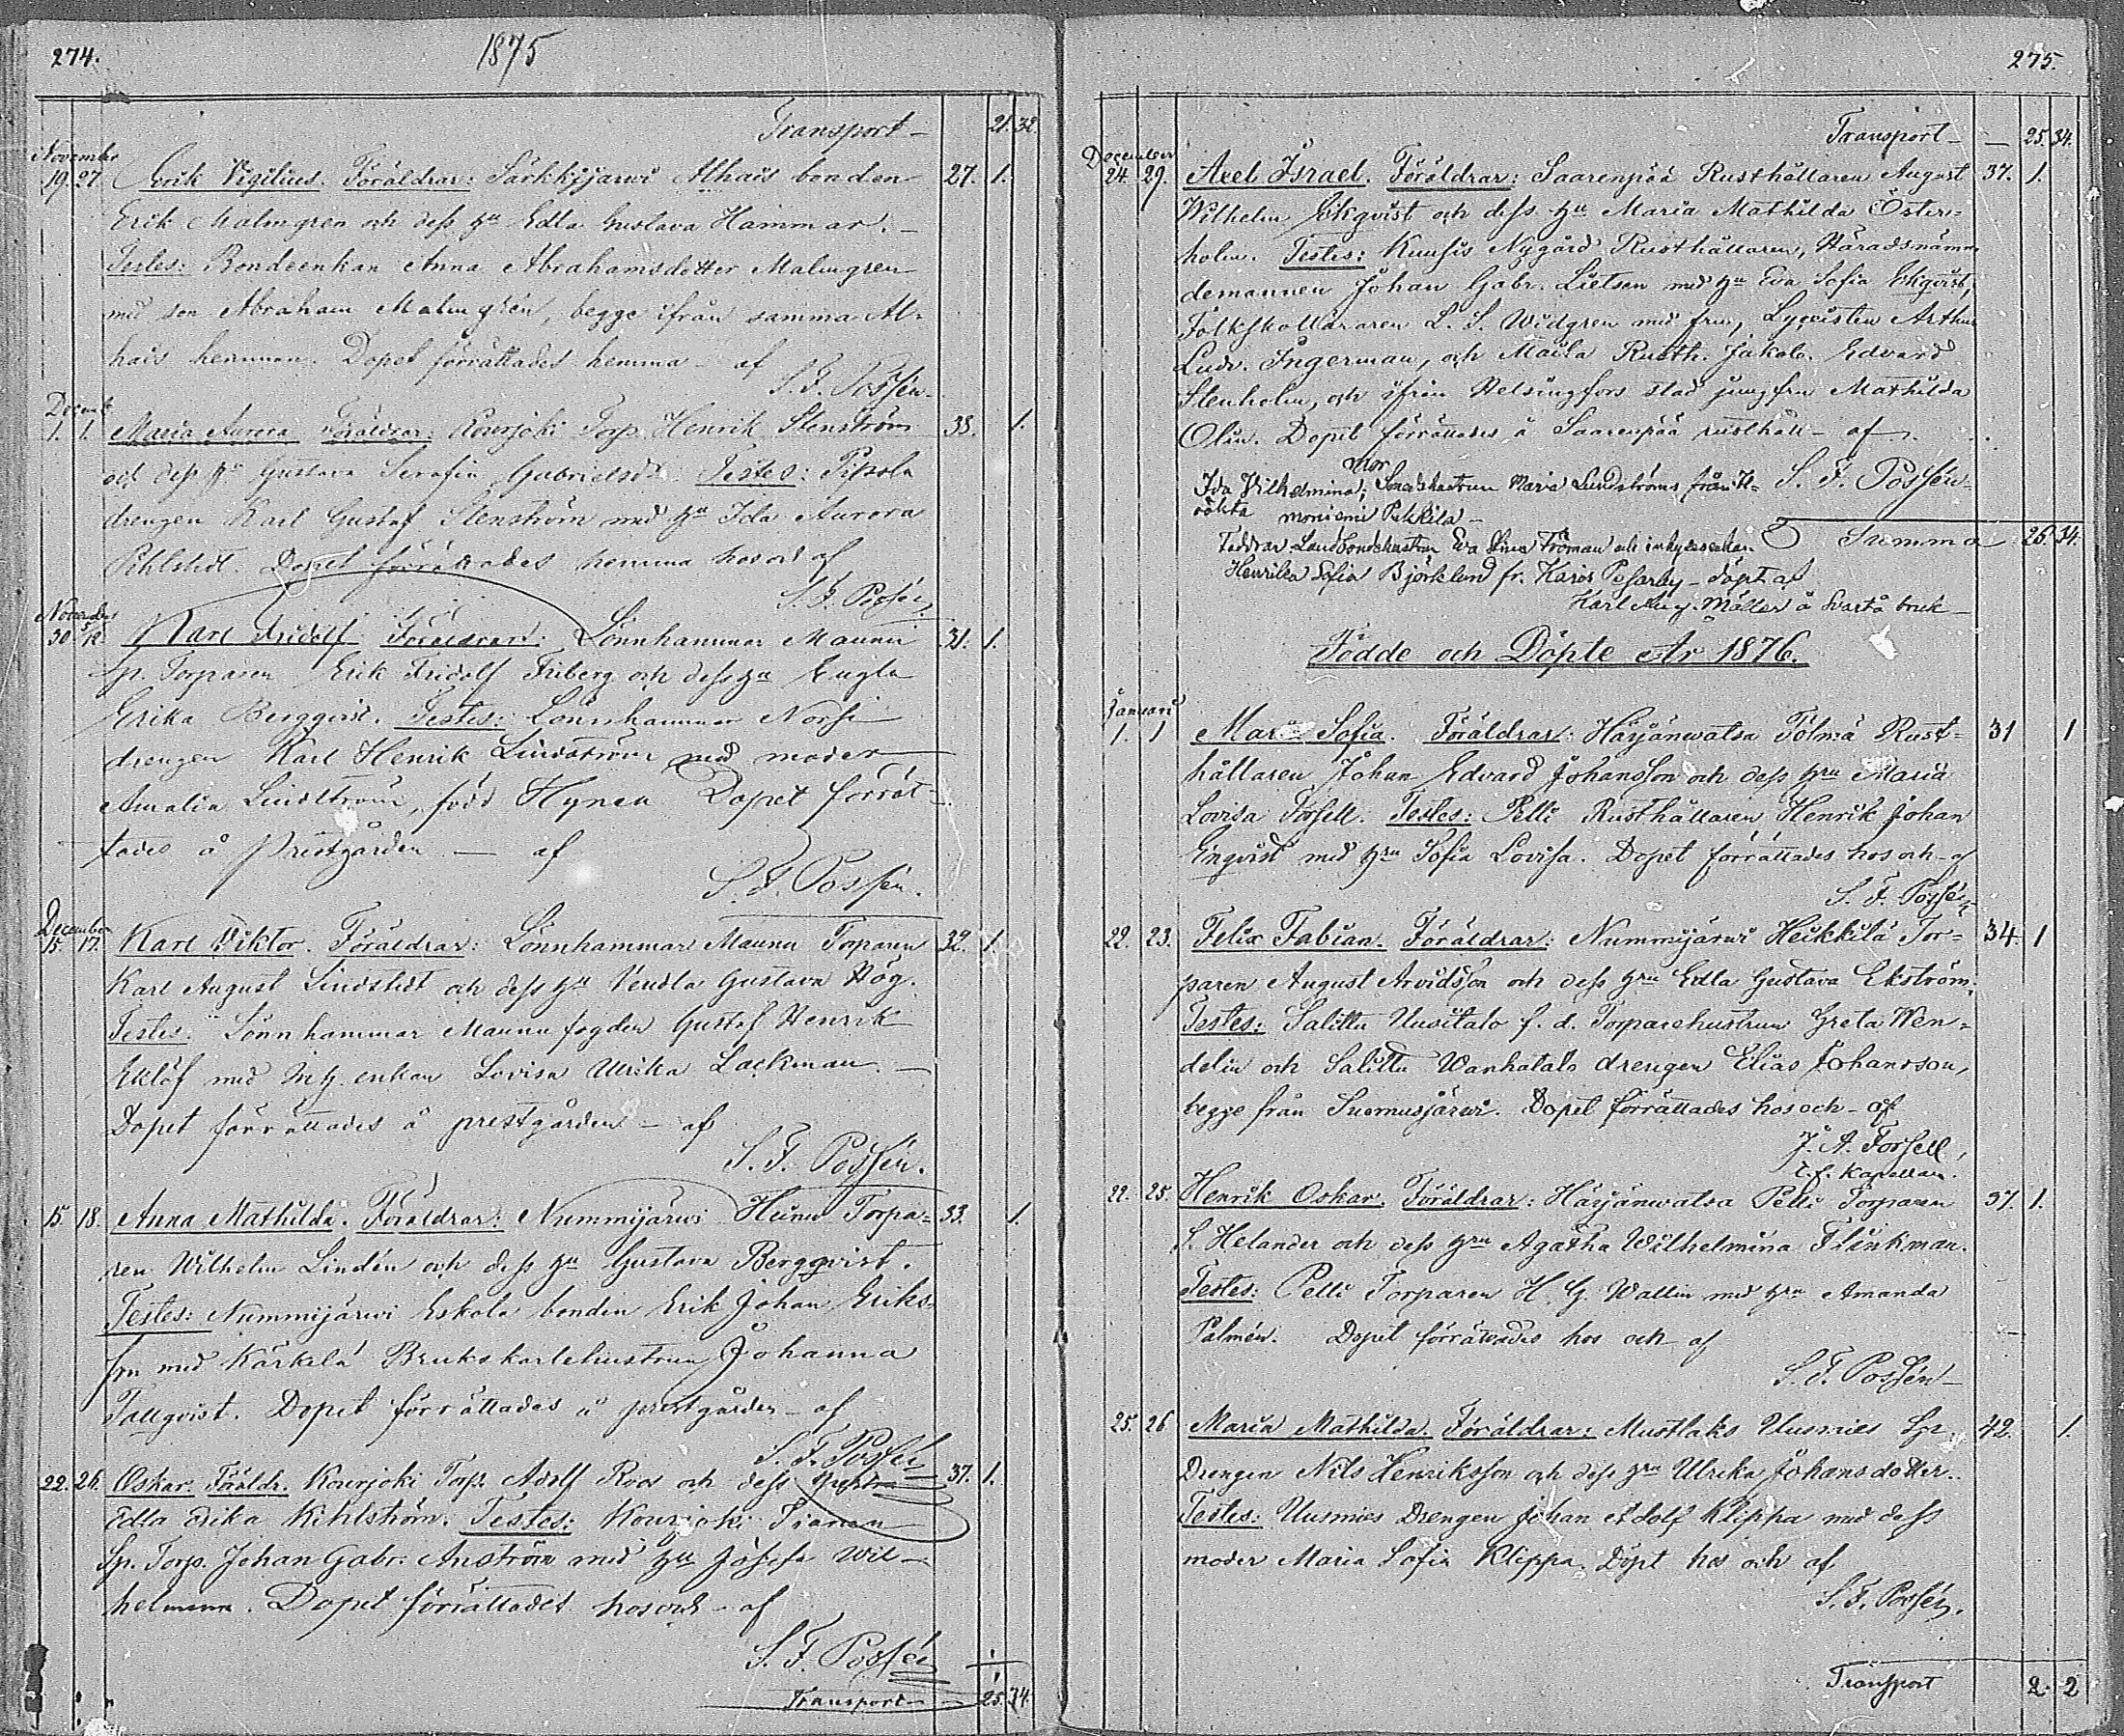 274. 1875
Transport – 21. 32.
November
19. 27. Erik Vigilius. Föräldrar: Särkkjärwi Alhais bonden 27. 1.
Erik Malmgren och dess hu Edla Gustava Hammar. –
Testes: Bondeenkan Anna Abrahamsdotter Malmgren
med son Abraham Malmgrén, begge ifrån samma Al-
hais hemman. Dopet förrättades hemma – af
S. F. Possén.
Decemb
1. 1. Maria Aurora Föräldrar: Kourjoki Torp. Henrik Stenström 38. 1.
och dess hu Gustava Serafia Gabrielsdr. Testes:
drengen Karl Gustaf Stenström med hu Ida Aurora
Pihlstedt. Dopet förrättades hemma hos och af
S. F. Possén
November
30 5/12. Karl Fridolf Föräldrar: Lönnhammar Maunu 31. 1.
Sp. Torparen Erik Fridolf Friberg och dess hu Engla
Erika Bergqvist. Testes: Lönnhammar Norsi
drengen Karl Henrik Lindström med moder
Amalia Lindström, född Hynen Dopet förrät-
tades å Prestgården – af
S. F. Possén.
December
15. 17. Karl Viktor. Föräldrar: Lönnhammar Maunu Torparen 32. 1.
Karl August Lindstedt och dess hu Vendla Gustava Hög.
Testes: Lönnhammar Maunu fogden Gustaf Henrik
Eklöf med Inh. enkan Lovisa Ulrika Lackman. –
Dopet förrättades å prestgården – af
S. F. Possén.
15. 18. Anna Mathilda. Föräldrar: Nummijärwi Torpa- 33. 1.
ren Wilhelm Lindén och dess hu Gustava Bergqvist.
Testes: Nummijärwi Eskola bonden Erik Johan Eriks-
son med Kärkelä Brukskarlehustrun Johanna
Tallqvist. Dopet förrättades å prestgården – af
S. F. Possén
22. 26. Oskar. Föräldr. Kourjoki Torp. Adolf Roos och dess hustru 37. 1.
Edla Erika Kihlström. Testes: Kourjoki
Sp. Torp. Johan Gabr: Anström med hu Josefa Wil-
helmina. Dopet förrättades hos och – af
S. F. Possén
Transport – 25. 34.
275.
Transport – – 25. 34.
December
24. 29. Axel Israel. Föräldrar: Saarenpää Rusthållaren August 37. 1.
Wilhelm Ekqvist och dess hu Maria Mathilda Öster-
holm. Testes: Kuusis Nygård Rusthållaren, Häradsnämn
demannen Johan Gabr. Lietsen med hu Eva Sofia Ekqvist,
Folkskolläraren L. S. Widgren med fru, Lyceisten Arthur
Ludv. Ingerman, och Maila Rusth. Jakob. Edvard
Stenholm, och ifrån Helsingfors stad jungfru Mathilda
Olin. Dopet förrättades å Saarenpää rusthåll – af
S. F. Possén
Ida Vilhelmina, Mor Maria Lundström från
oäkta moniemi Pekkila –
Faddrar Landbondehustrun Eva Stina Fröman och inhyseenkan
Henrika Sofia Björklund fr. Karis – döpt af
Karl Aug. Möller å Svartå bruk
Summa 25. 34.
Födde och Döpte År 1876.
Januari
1. 1 Maria Sofia. Föräldrar: Härjänwatsa Tölmä Rust- 31 1
hållaren Johan Edvard Johansson och dess hru Maria
Lovisa Forsell. Testes: Pelli Rusthållaren Henrik Johan
Enqvist med hru Sofia Lovisa. Dopet förrättades hos och – af
S. F. Possén
22. 23. Felix Fabian. Föräldrar: Nummijärwi Heikkilä Tor- 34. 1
paren August Arvidsson och dess hru Edla Gustava Ekström.
Testes: Salittu Uusitalo f. d. Torparehustrun Greta Wen-
delin och Salittu Wanhatalo drengen Elias Johansson,
begge från Suomusjärwi. Dopet förrättades hos och – af
J. A. Forsell,
t. f. Kapellan.
22. 25. Henrik Oskar. Föräldrar: Härjänwatsa Pelli Torparen 37. 1.
S. Helander och dess hru Agatha Wilhelmina Flinkman.
Testes: Pelli Torparen H. G. Wallin med hru Amanda
Palmén. Dopet förrättades hos och – af
S. F. Possén –
25. 26 Maria Mathilda. Föräldrar: Mustlaks Uusmies Sp. 42. 1.
Drengen Nils Henriksson och dess hru Ulrika Johansdotter.
Testes: Uusmies Drengen Johan Adolf Klippa med dess
moder Maria Sofia Klippa. Döpt hos och af
S. F. Possén.
Transport 2. 2